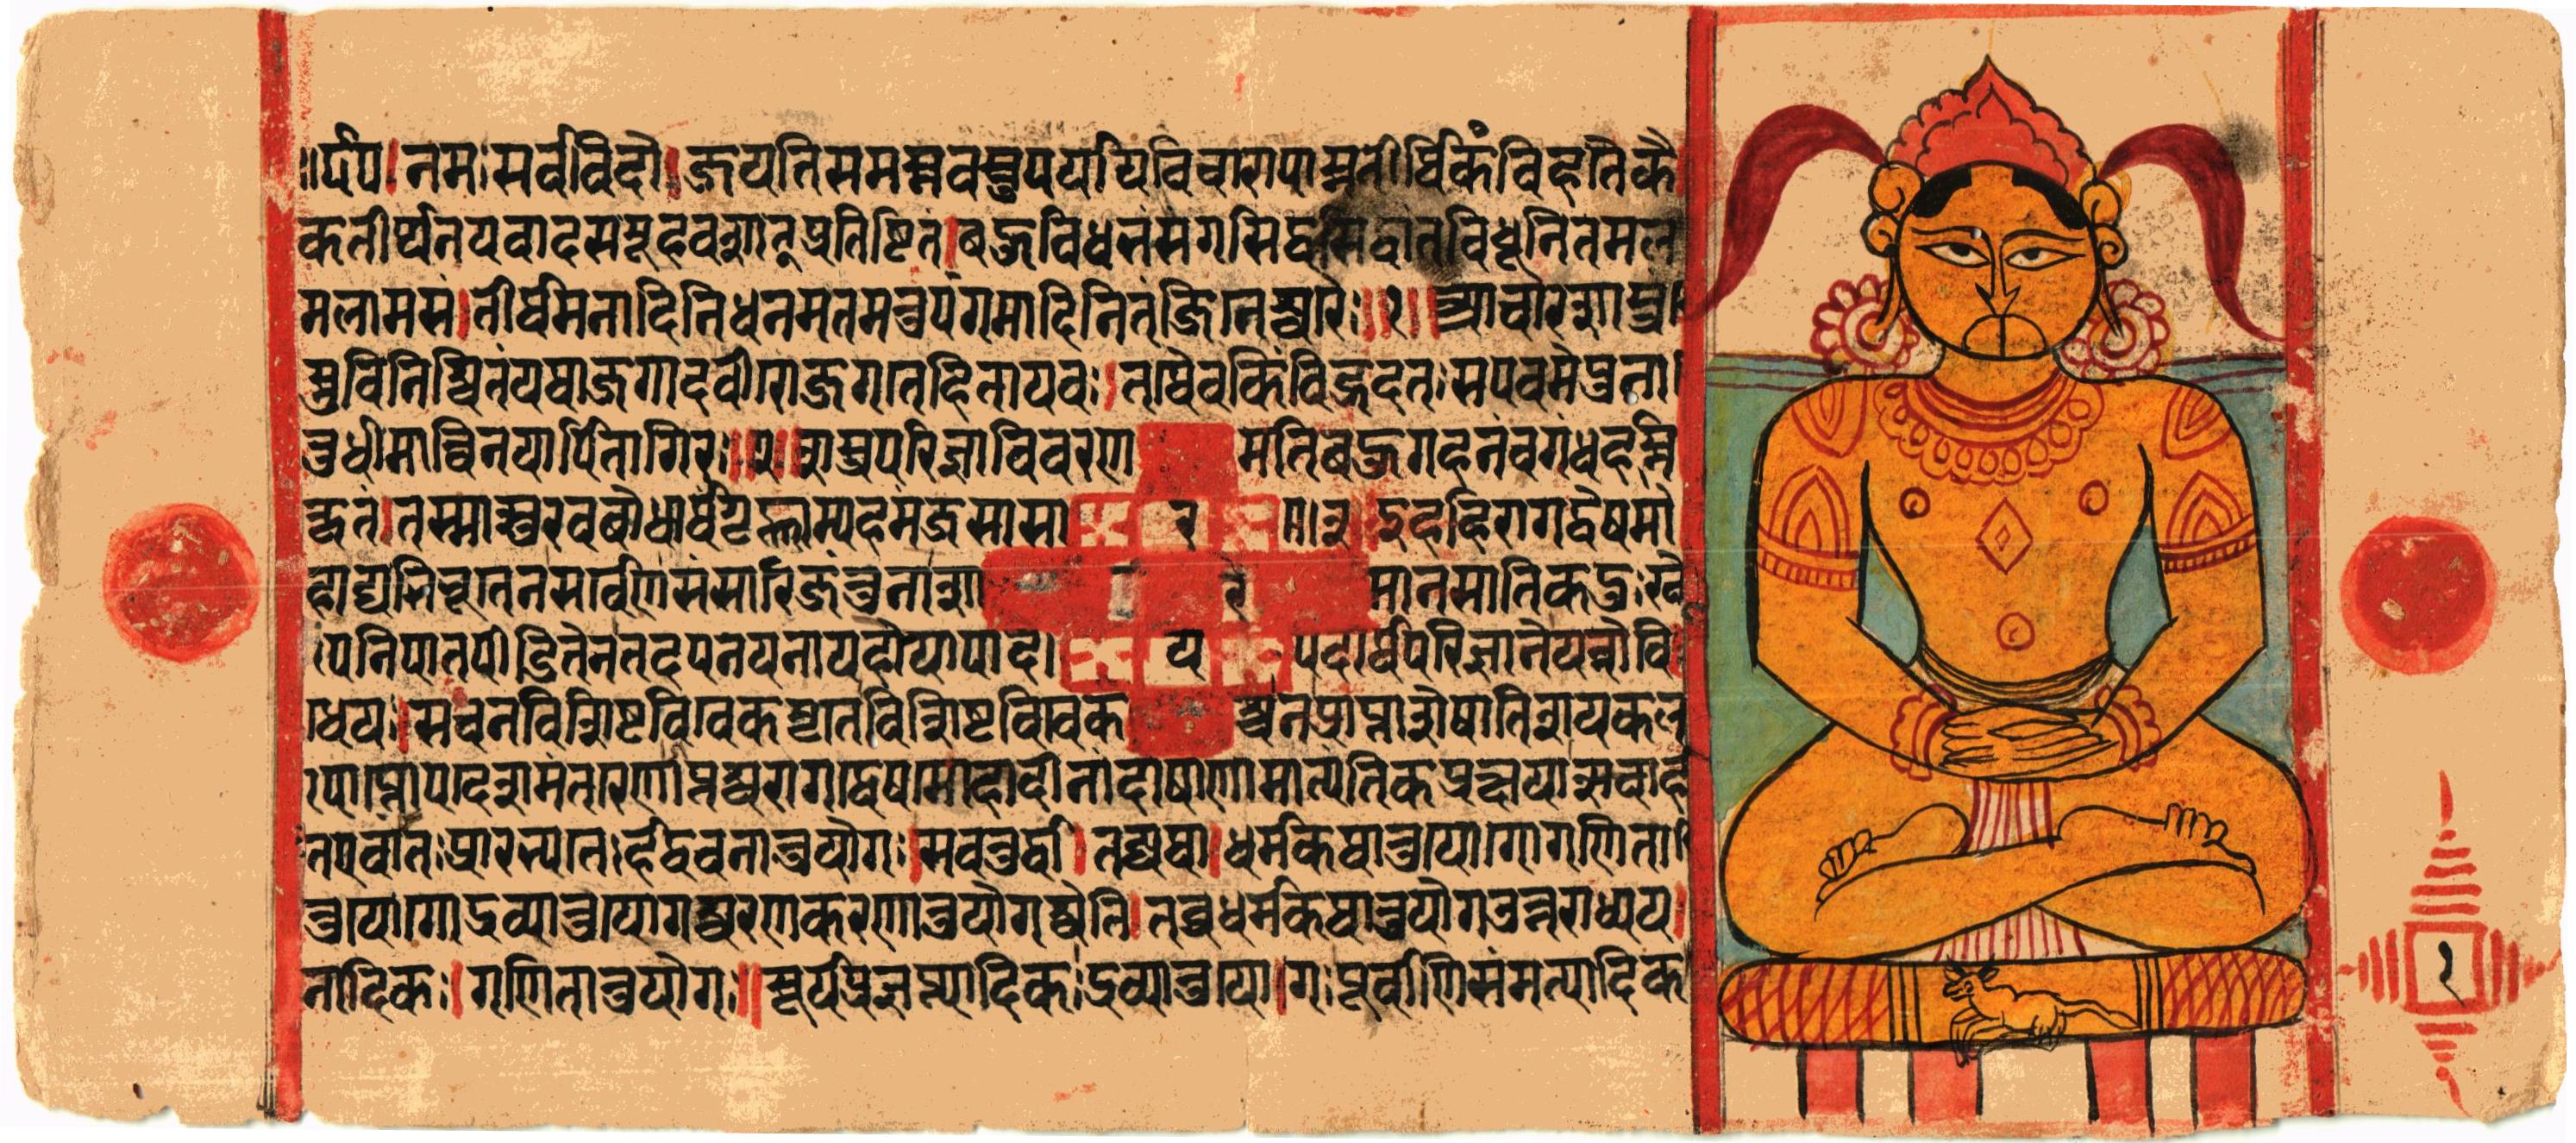 नमः सर्वविदे । जयति समस्तवस्तुपर्यायविचारापास्ततीर्थिकं विहतैकै
कतीर्थनयवादसमूहवशात्प्रतिष्ठितं । बहुविध सिद्धसिद्धांतविधूनितमल
मलीमसं । तीर्थमनादिनिधन जिनेश्वरैः ॥ १ ॥ आचारशास्त्रं
सुविनिश्चितं यथा जगाद वीरो जगते हिताय यः । तथैव किंचिद्गदतः स एव मे पुना
तु धीमान् विनयार्पिता गिरः ॥ २ ॥ शस्त्रपरिज्ञाविवरणमतिबहुगहनं च गंधहस्ति
कृतं । तस्मात्सुखबोधार्थं गृह्णाम्यहमंजसा सारं ॥ ३ ॥ इह हि रागद्वेषमो
हाद्यभिभूतेन संसारिजंतुना शारीरमानसा दुःखो
पनिपातपीडितेन तदपनयनाय हेयोपादेयपदार्थपरिज्ञाने यत्नो वि
धेयः । स च न विशिष्टविवेकमृते विशिष्टविवेकश्च न प्राप्ताशेषातिशयकल
पाप्तोपदेशमंतरेण आप्तश्च रागद्वेषमोहादीनां दोषाणामात्यंतिकप्रक्षयात्स चार्ह
प्रारभ्यते अर्हद्वचनानुयोगः । स चतुर्धा । तद्यथा । धर्मकथानुयोगो गणिता
नुयोगो द्रव्यानुयोगश्चरणकरणानुयोगश्चेति । तत्र धर्मकथानुयोग उत्तराध्यय
नादिकः । गणितानुयोगः ॥ सूर्यप्रज्ञप्त्यादिकः द्रव्यानुयोगः पूर्वाणि संमत्यादिक
१